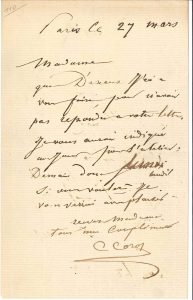 Paris le 27 mars
Madame
que D'excuses j'ai a
vous faire, pour n'avoir
pas repondu a votre lettre
Je vous aurai indiqué
un jour pour l'atelier.
Demain donc
Si vous voulez Je
vous
recevez Madame
tous mes Compliments
C. Corot